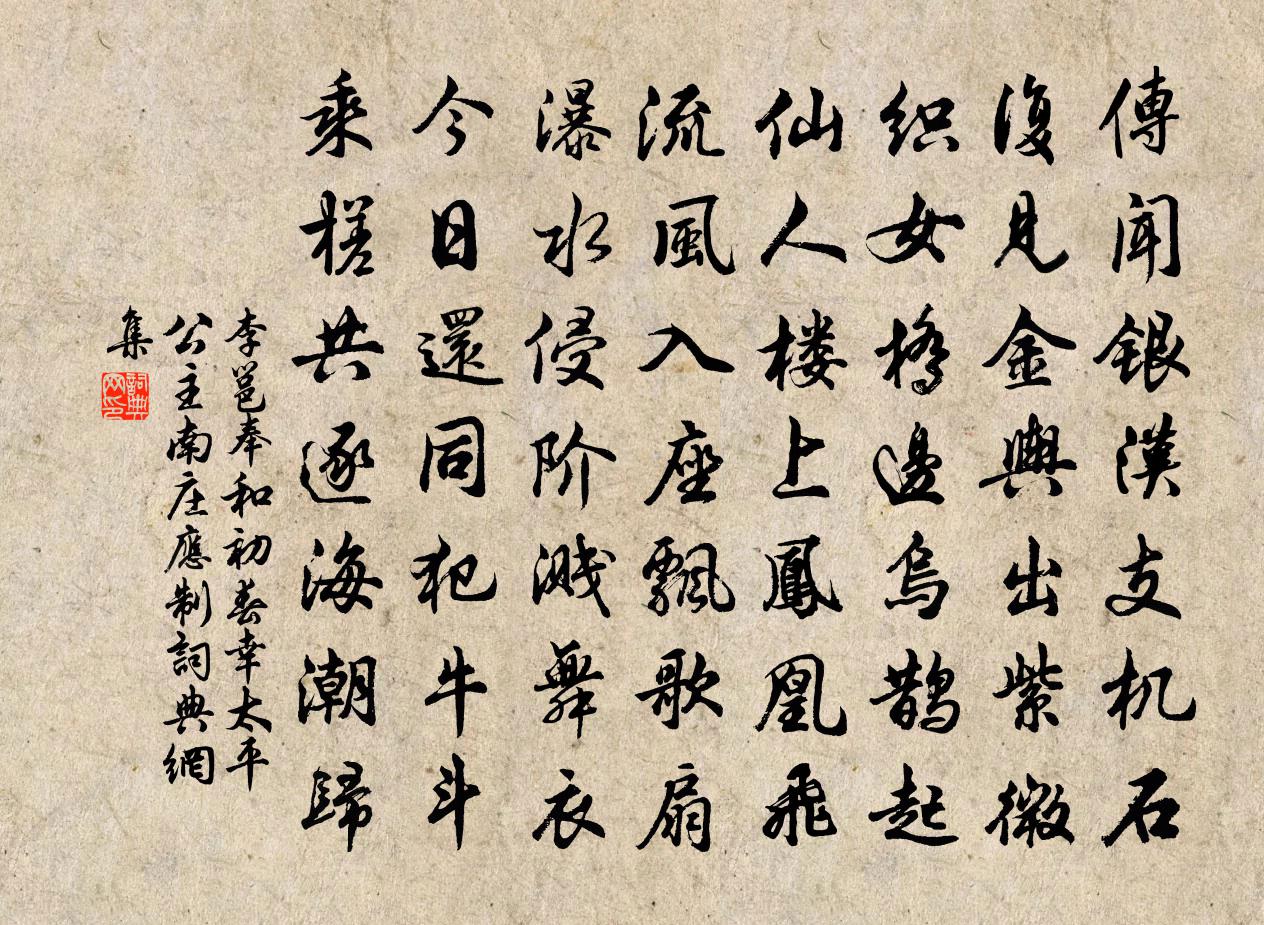 傳闻銀漢支机石
復见金輿出紫微
织女橋邊烏鹊起
仙人楼上鳳凰飛
流風入座飄歌扇
瀑水侵阶溅舞衣
今日還同犯牛斗
乘槎共逐海潮歸
李邕奉和初春幸太平
公主南庄應制詞典網
集
詞典
网印